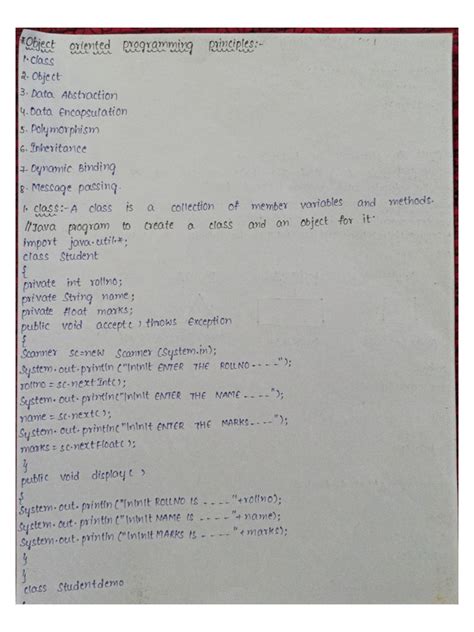 *Object oriented programming principles:-
1. Class
2. Object
3. Data Abstraction
4. Data Encapsulation
5. Polymorphism
6. Inheritance
7. Dynamic Binding
8. Message passing.
1. class:- A class is a collection of member variables and methods.
//Java program to create a class and an object for it.
import java.util.*;
class Student
{
private int rollno;
private String name;
private float marks;
public void accept() throws Exception
{
Scanner sc=new Scanner (System.in);
System.out.println ("\n\n\t ENTER THE ROLLNO ----");
rollno = sc.nextInt();
System.out.println("\n\n\t ENTER THE NAME ----");
name = sc.next();
System.out.println ("\n\n\t ENTER THE MARKS----");
marks = sc.nextFloat();
}
public void display()
{
System.out.println ("\n\n\t ROLLNO IS ----"+rollno);
System.out.println ("\n\n\t NAME IS ----"+name);
System.out.println ("\n\n\t MARKS IS ----"+marks);
}
}
class Studentdemo
{